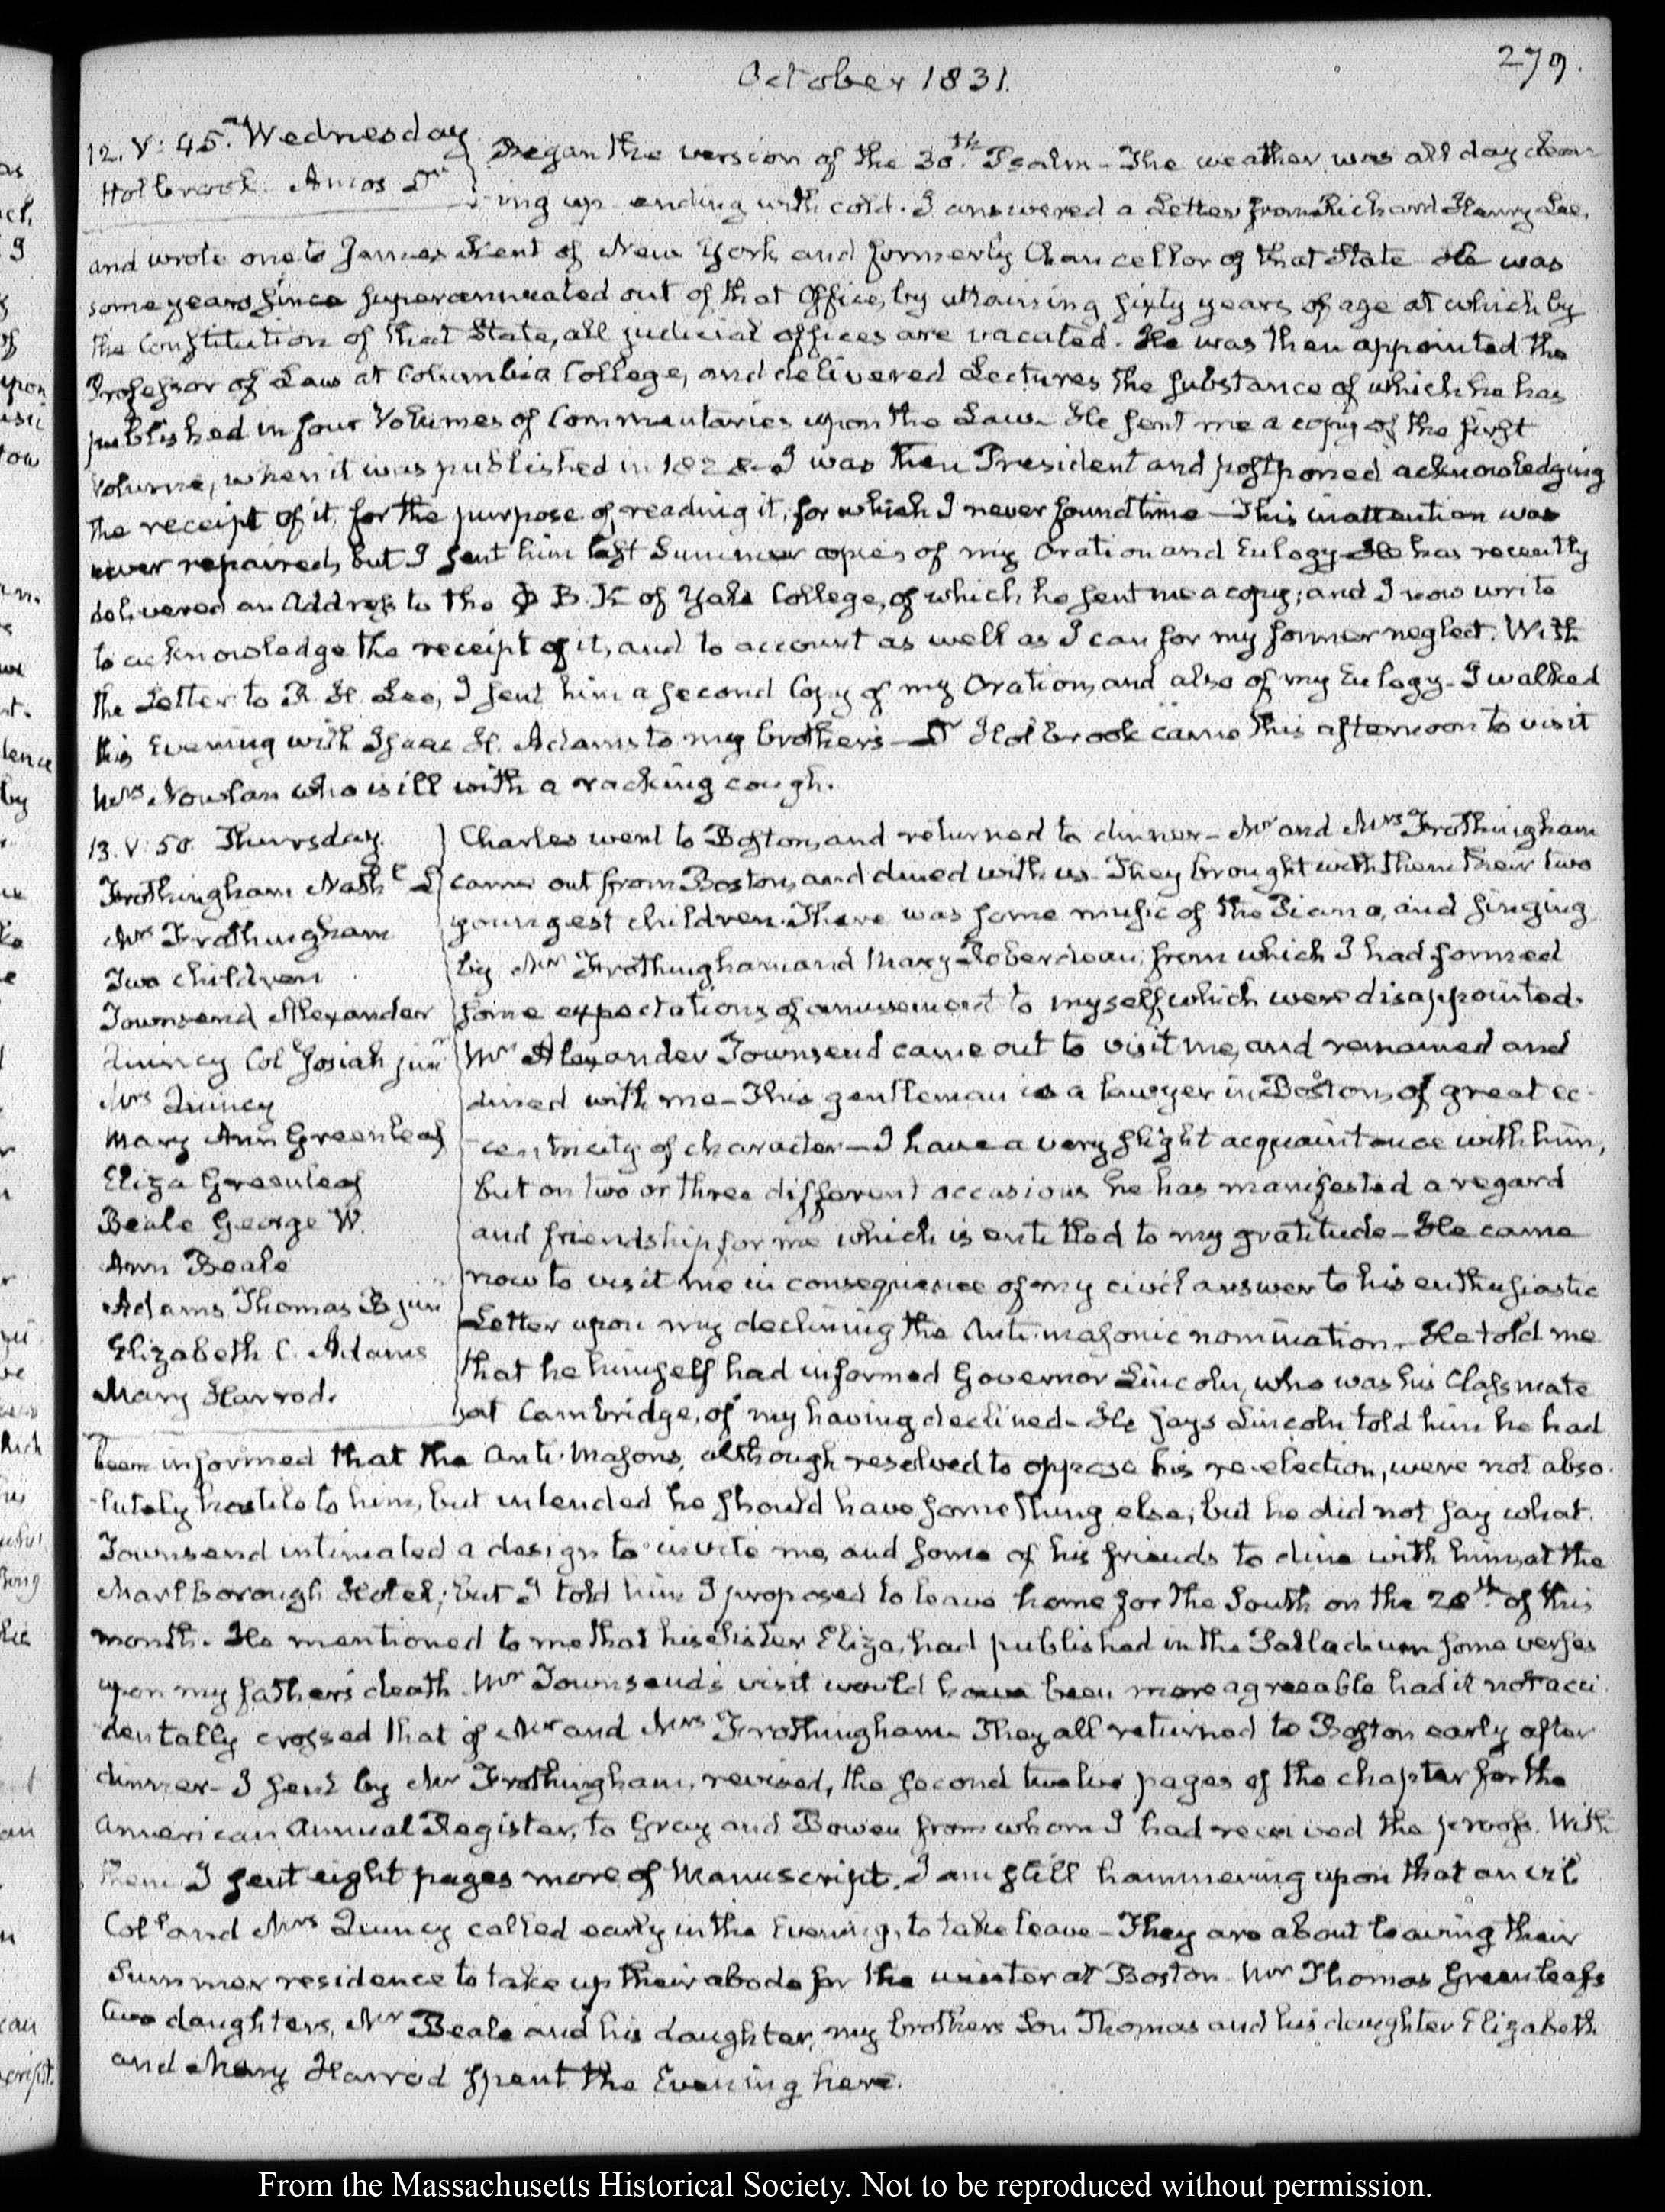 279.
October 1831.
12. V: 45. Wednesday
Holbrook. Amos Dr
Began the version of the 30th. Psalm - The weather was all day clear-
-ing up ending with cold. I answered a Letter from Richard Henry Lee,
and wrote one to James Kent of New York and formerly Chancellor of that State He was
some years since superannuated out of that Office, by attaining sixty years of age at which by
the Constitution of that State, all judicial offices are vacated. He was then appointed the
Professor of Law at Columbia College, and delivered Lectures the substance of which he has
published in four Volumes of Commentaries upon the Law - He sent me a copy of the first
volume, when it was published in 1828 - I was then President and postponed acknowledging
the receipt of it, for the purpose of reading it, for which I never found time - This inattention was
never repaired, but I sent him last Summer copies of my Oration and Eulogy - He has recently
delivered an Address to the Φ B. K of Yale College, of which he sent me a copy; and I now write
to acknowledge the receipt of it, and to account as well as I can for my former neglect. With
the Letter to R. H. Lee, I sent him a second Copy of my Oration, and also of my Eulogy - I walked
this Evening with Isaac H. Adams to my brother's - Dr Holbrook came this afternoon to visit
Mrs Nowlan who is ill with a racking cough.
13. V: 50. Thursday.
Frothingham Nathl L
Mrs Frothingham
Two children
Townsend Alexander
Quincy Col Josiah junr
Mrs Quincy
Mary Ann Greenleaf
Eliza Greenleaf
Beale George W.
Ann Beale
Adams Thomas B jun
Elizabeth C. Adams
Mary Harrod.
Charles went to Boston, and returned to dinner - Mr and Mrs Frothingham
came out from Boston, and dined with us - They brought with them their two
youngest children. There was some music of the Piano, and singing
by Mr Frothingham and Mary Roberdeau, from which I had formed
some expectations of amusement to myself which were disappointed.
Mr Alexander Townsend came out to visit me, and remained and
dined with me - This gentleman is a lawyer in Boston, of great ec-
-centricity of character - I have a very slight acquaintance with him,
but on two or three different occasions he has manifested a regard
and friendship for me which is entitled to my gratitude - He came
now to visit me in consequence of my civil answer to his enthusiastic
Letter upon my declining the Antimasonic nomination - He told me
that he himself had informed Governor Lincoln, who was his Classmate
at Cambridge, of my having declined - He says Lincoln told him he had
been informed that the Anti-Masons, although resolved to oppose his re-election, were not abso-
-lutely hostile to him, but intended he should have something else; but he did not say what.
Townsend intimated a design to invite me, and some of his friends to dine with him, at the
Marlborough Hotel; but I told him I proposed to leave home for the South on the 20th. of this
month. He mentioned to me that his Sister Eliza, had published in the Palladium some verses
upon my father's death. Mr Townsend's visit would have been more agreeable had it not acci-
dentally crossed that of Mr and Mrs Frothingham They all returned to Boston early after
dinner - I sent by Mr Frothingham, revised, the second twelve pages of the chapter for the
American Annual Register, to Gray and Bowen from whom I had received the proofs. With
them I sent eight pages more of Manuscript. I am still hammering upon that anvil
Coll and Mrs Quincy called early in the Evening, to take leave - They are about leaving their
Summer residence to take up their abode for the winter at Boston. Mr Thomas Greenleafs
two daughters, Mr Beale and his daughter, my brothers Son Thomas and his daughter Elizabeth
and Mary Harrod spent the Evening here.
From the Massachusetts Historical Society. Not to be reproduced without permission.